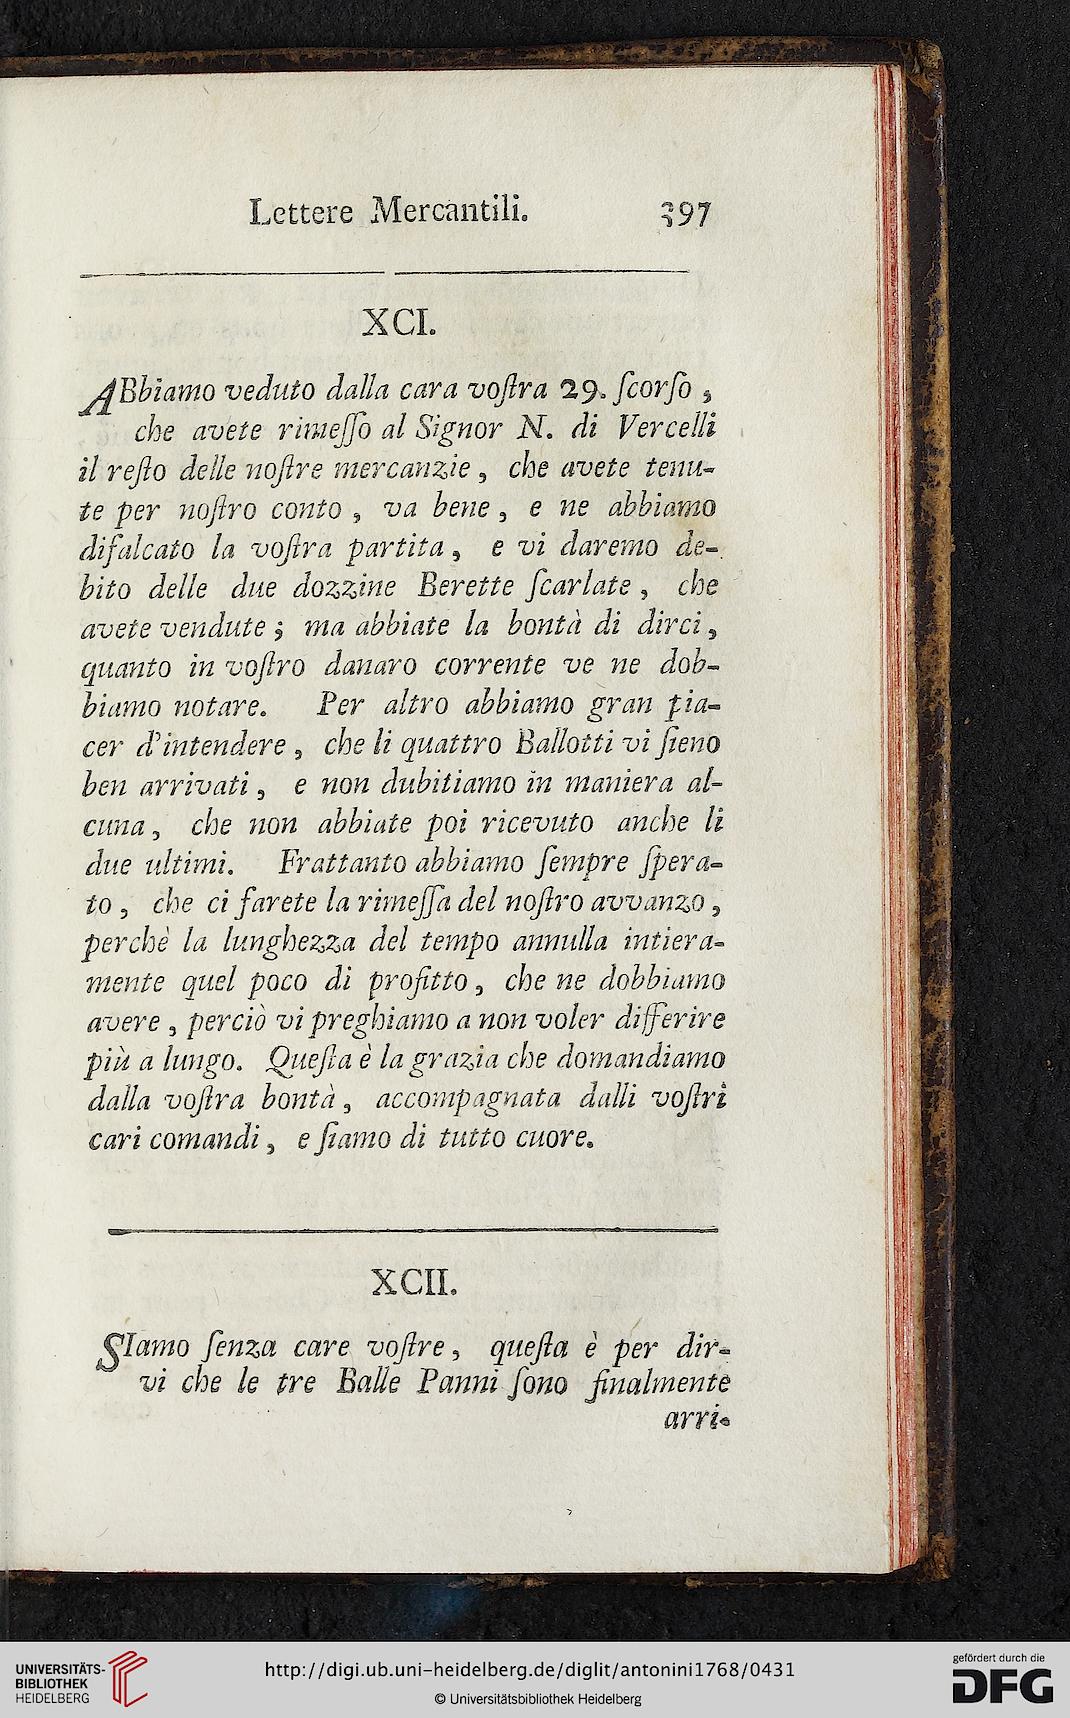 Lettere Mercantili. 397
XCI.
ABbiamo veduto dalla cara voſtra 29. ſcorſo,
che avete rimeſſo al Signor N. di Vercelli
il reſto delle noſtre mercanzie, che avete tenu-
te per noſtro conto, va bene, e ne abbiamo
difalcato la voſtra partita, e vi daremo de-
bito delle due dozzine Berette ſcarlate, che
avete vendute; ma abbiate la bontà di dirci,
quanto in voſtro danaro corrente ve ne dob-
biamo notare. Per altro abbiamo gran pia-
cer d'intendere, che li quattro Ballotti vi ſieno
ben arrivati, e non dubitiamo in maniera al-
cuna, che non abbiate poi ricevuto anche li
due ultimi. Frattanto abbiamo ſempre ſpera-
to, che ci farete la rimeſſa del noſtro avvanzo,
perchè la lunghezza del tempo annulla intiera-
mente quel poco di profitto, che ne dobbiamo
avere, perciò vi preghiamo a non voler differire
più a lungo. Queſta è la grazia che domandiamo
dalla voſtra bontà, accompagnata dalli voſtri
cari comandi, e ſiamo di tutto cuore.
XCII.
SIamo ſenza care voſtre, queſta è per dir-
vi che le tre Balle Panni ſono finalmente
arri-
UNIVERSITÄTS-
BIBLIOTHEK
HEIDELBERG
http://digi.ub.uni-heidelberg.de/diglit/antonini1768/0431
© Universitätsbibliothek Heidelberg
gefördert durch die
DFG